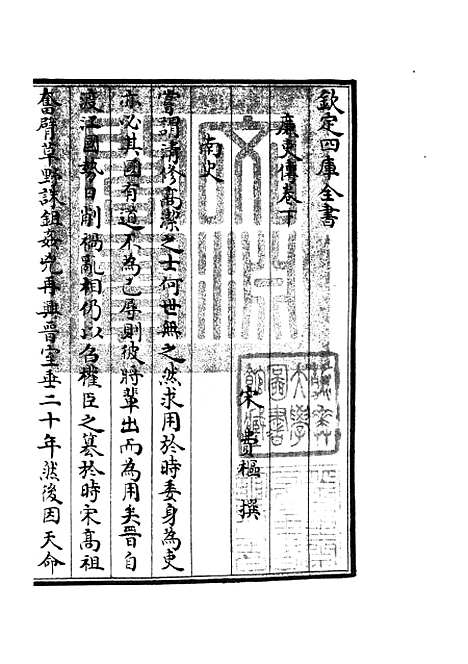 欽定四庫全書
廉吏傳卷下
宋 費樞 撰
南史
嘗謂清修高潔之士何世無之然求用於時委身為吏
亦必其國有道不為己辱則彼將輩出而為用矣晉自
渡江國勢日削禍亂相仍以名權臣之簒於時宋高祖
奮臂草野誅鉏姦兇再興晉室垂二十年然後因天命